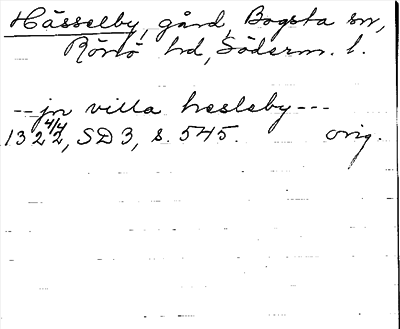 Hässelby, gård, Bogsta sn,
Rönö hd, Söderm. l.
--- jn villa hesleby ---
13 4/4 22, SD 3, s. 545. orig.